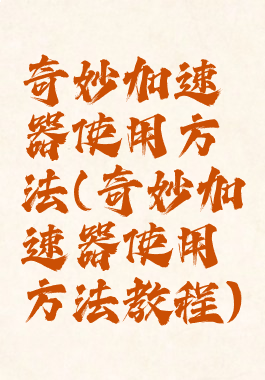 奇妙加速
器使用方
法(奇妙加
速器使用
方法教程)